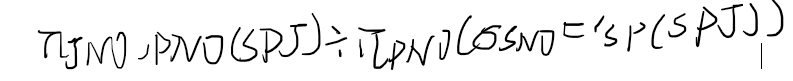 πJNO,PNO(SPJ)÷πPNO(σSNO='SP(SPJ))